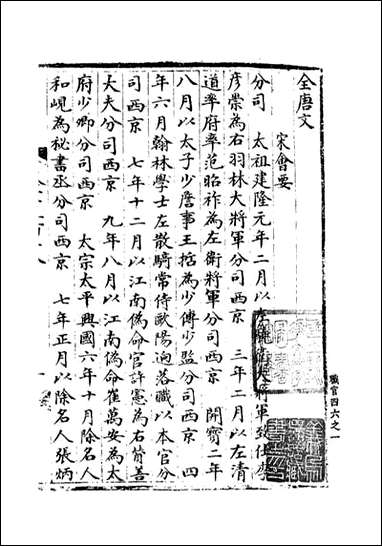 全唐文
宋會要
分司 太祖建隆元年二月以左大將軍致仕李
彥崇為右羽林大將軍分司西京 三年二月以左清
道率府率范昭祚為左衛將軍分司西京 開寶二年
八月以太子少詹事王為少傅少監分司西京 四
年六月翰林學士左散騎常侍歐陽迥落職以本官分
司西京 七年十二月以江南偽命官許憲為右贊善
大夫分司西京 九年八月以江南偽命崔萬安為太
府少卿分司西京 太宗太平興國六年十月除名人
和峴為秘書丞分司西京 七年正月以除名人張炳
職官四六之一